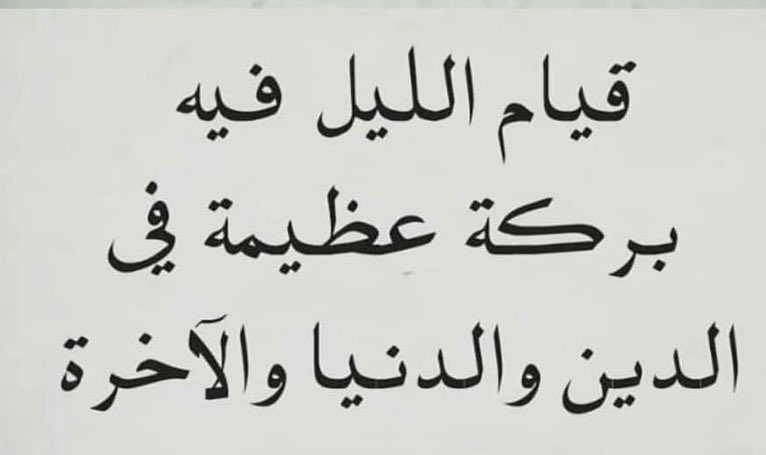 قيام الليل فيه
بركة عظيمة في
الدين والدنيا والآخرة